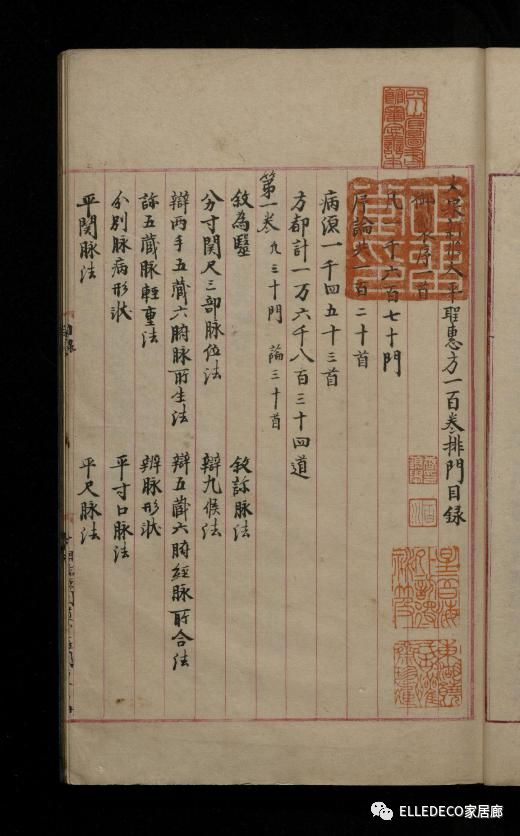 太平聖惠方一百卷排門目録
序一首
凡一千六百七十門
序論共一百二十首
病源一千四五十三首
方都計一万六千八百三十四道
第一卷 凡三十門 論三十首
敘為醫 敘診脉法
分寸関尺三部脉位法 辯九候法
辯兩手五藏六腑脉所生法 辯五藏六腑經脉所合法
診五藏脉輕重法 辨脉形狀
分別脉病形狀 平寸口脉法
平関脉法 平尺脉法
ELLEDECO家居廊